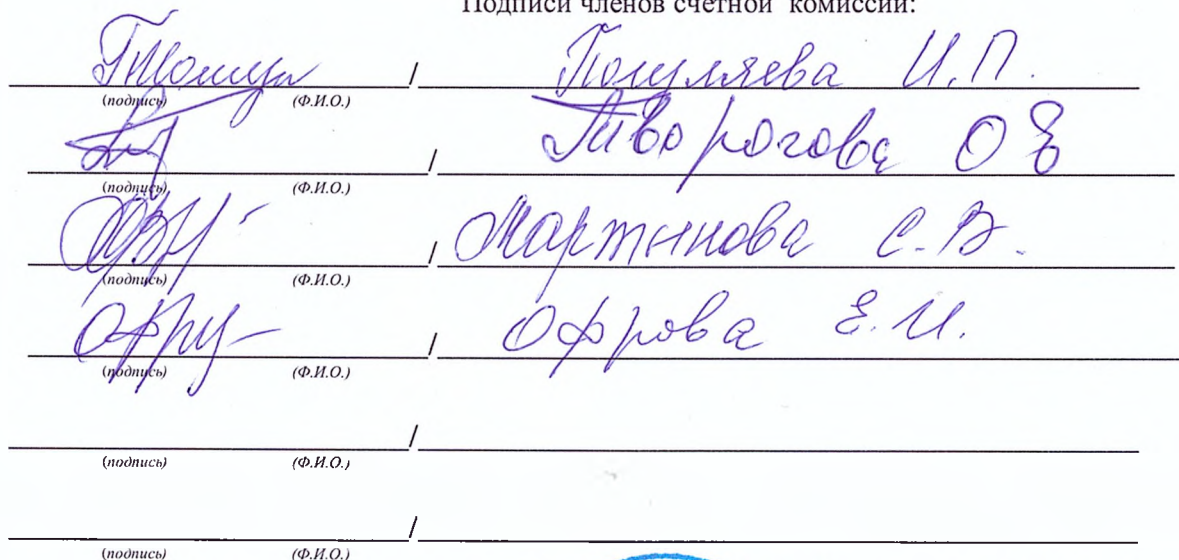 Подписи членов счетной комиссии:
/ И.П.
(подпись) (Ф.И.О.)
/ Творогова О Е
(подпись) (Ф.И.О.)
/ Мартынова С.В.
(подпись) (Ф.И.О.)
/ Офрова Е.И.
(подпись) (Ф.И.О.)
/
(подпись) (Ф.И.О.)
/
(подпись) (Ф.И.О.)